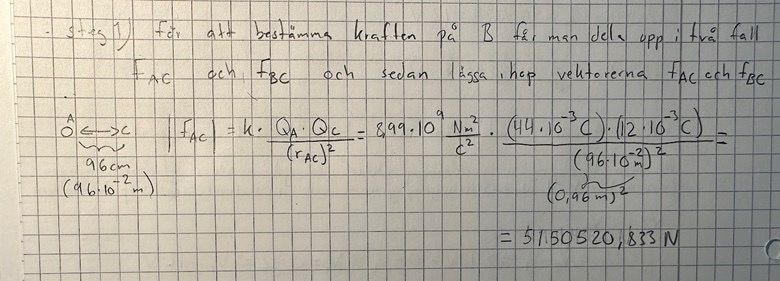 - steg 1) för att bestämma kraften på B får man dela opp i två fall
F_AC och F_BC och sedan lägga ihop vektorerna F_AC och F_BC
A
O ⟷ C |F_AC| = k · (Q_A · Q_C)/(r_AC)² = 8,99·10⁹ Nm²/C² · ((44·10⁻³ C)·(12·10⁻³ C))/(96·10⁻² m)² =
96cm
(96·10⁻² m)
(0,96 m)²
= 5150520,833 N